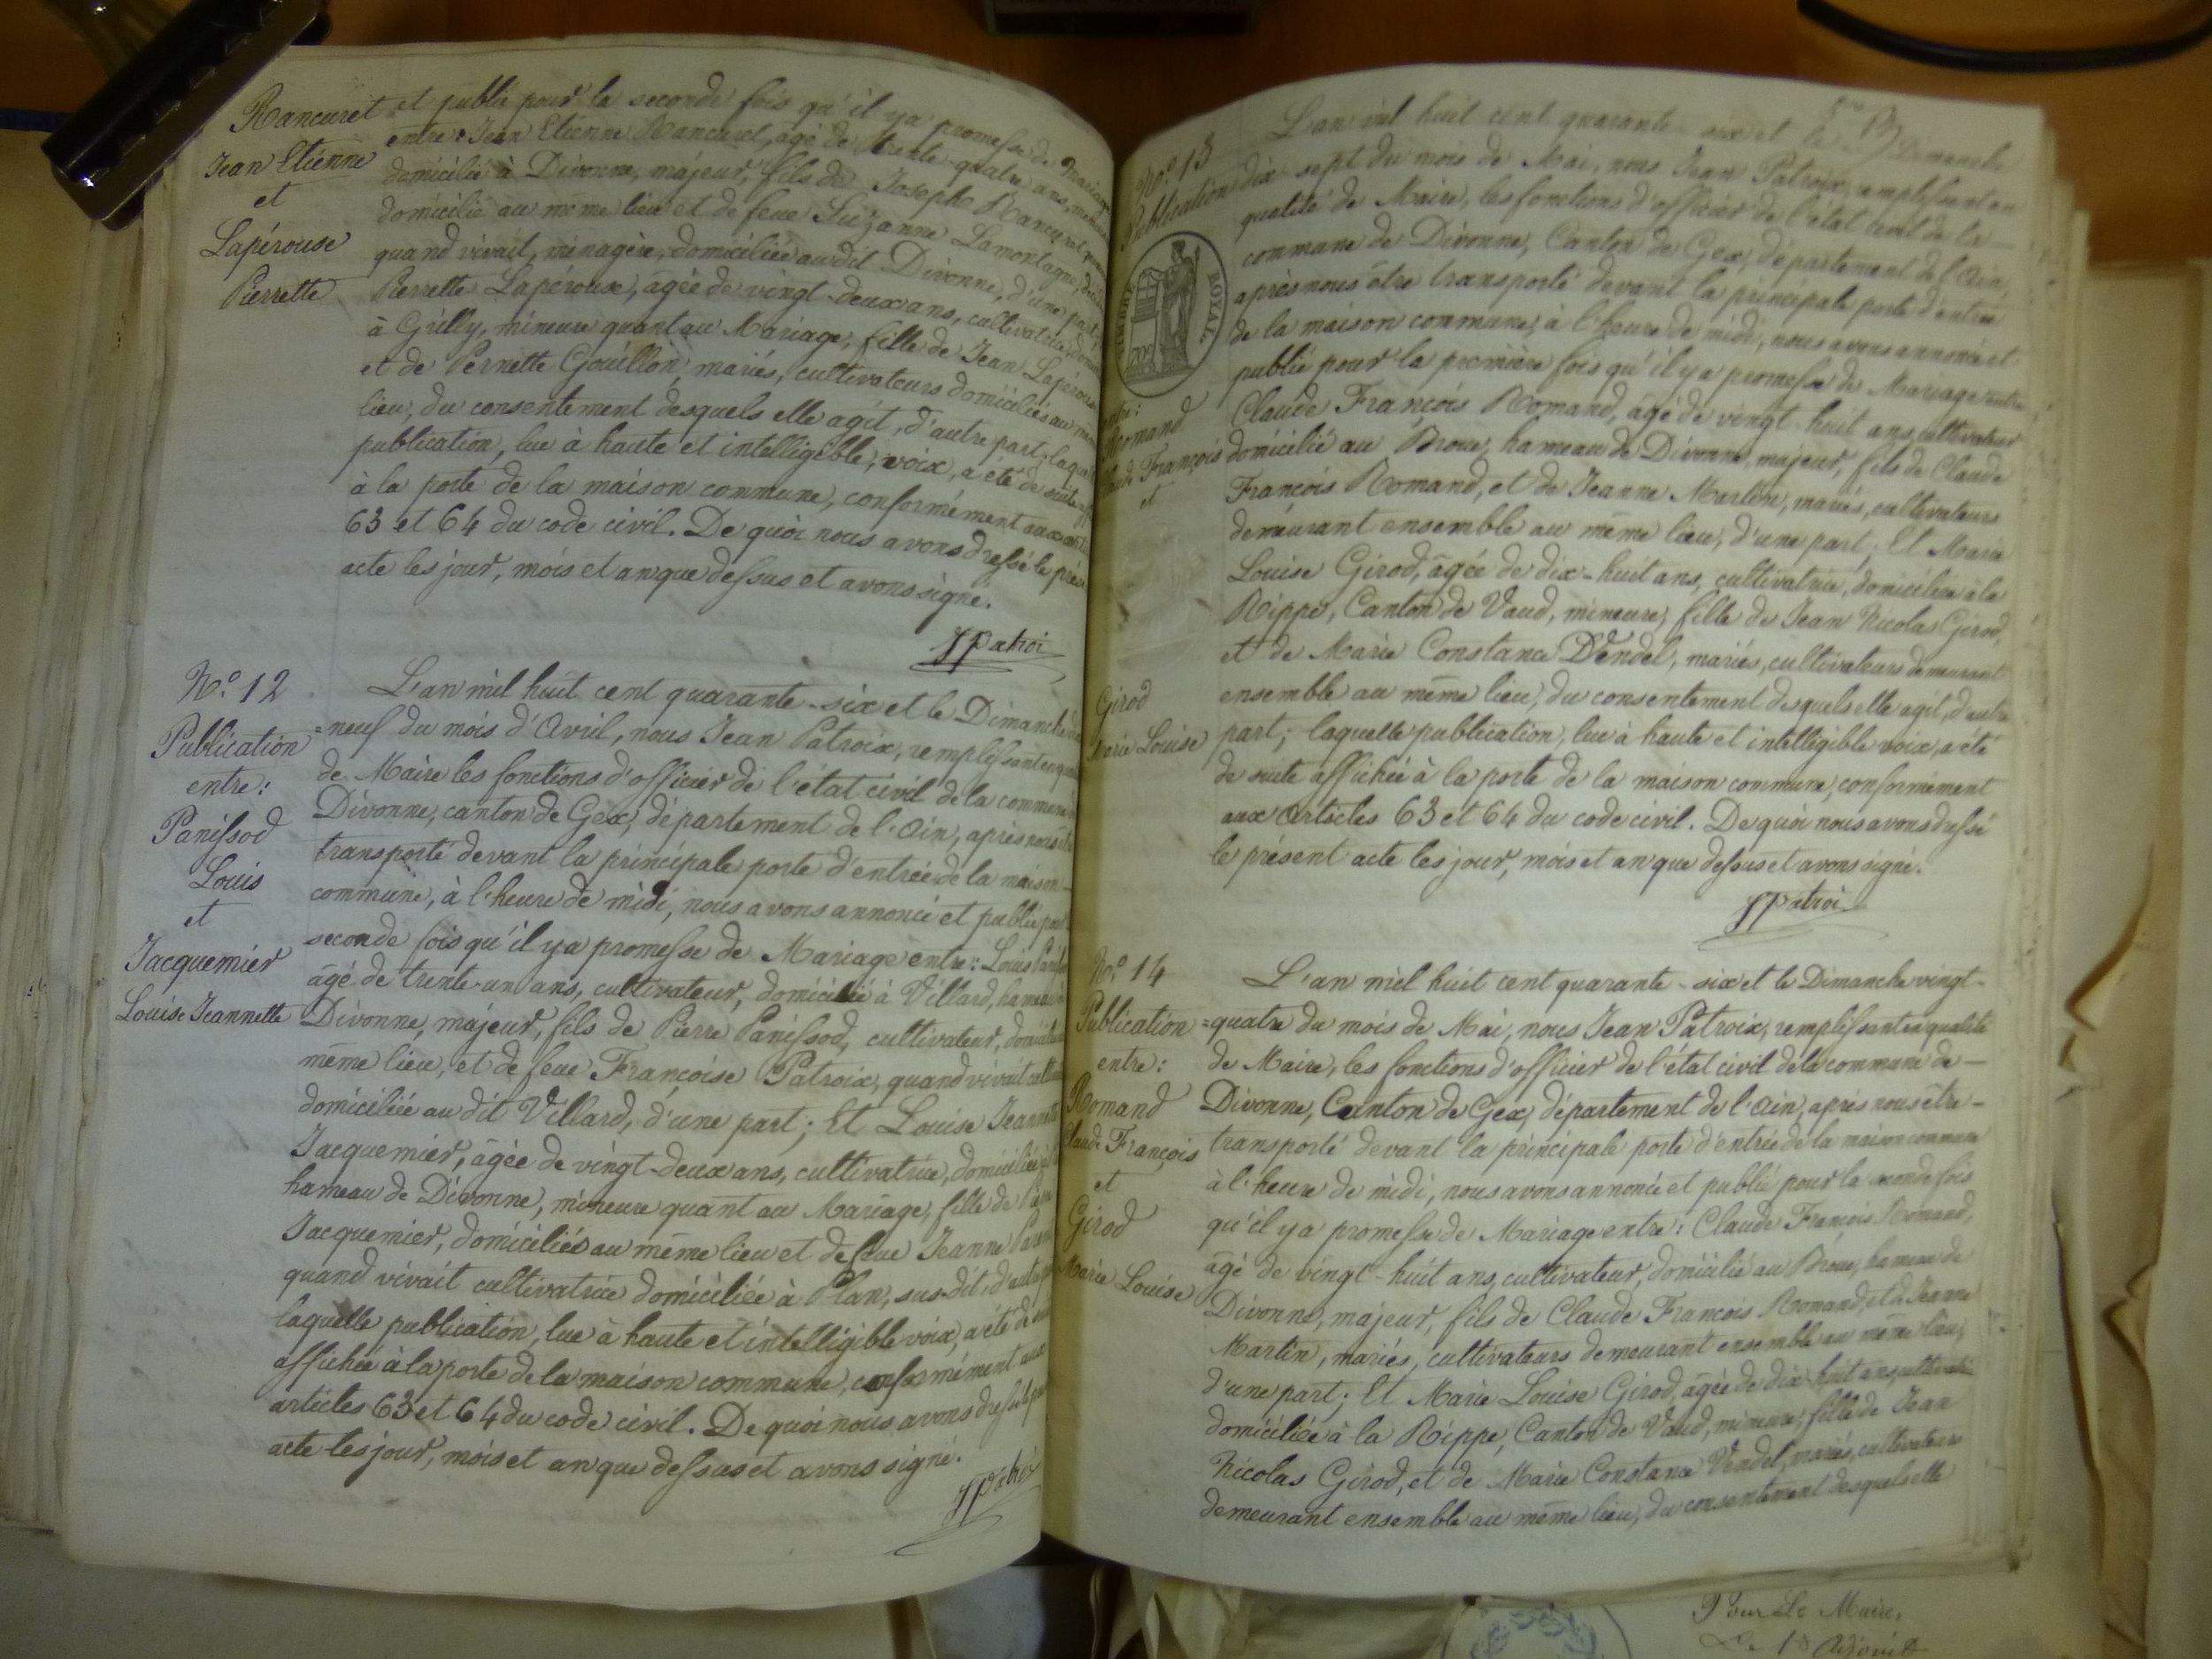 Rancuret
Jean Etienne
et
Lapérouse
Pierrette
et publié pour la seconde fois qu'il ya promesse de Mariage
entre: Jean Etienne Rancuret, agé de trente-quatre ans,
domicilié à Divonne, majeur, fils de Joseph Rancuret
domicilié au même lieu et de feue Suzanne Lamontagne,
quand vivait, ménagère, domiciliée audit Divonne, d'une part;
Pierrette Lapérouse, agée de vingt-deux ans, cultivatrice,
à Grilly, mineure quant au Mariage, fille de Jean Lapérouse
et de Pernette Gouillon, mariés, cultivateurs domiciliés au
lieu, du consentement desquels elle agit, d'autre part;
publication, lue à haute et intelligible, voix, a été de suite
à la porte de la maison commune, conformément aux
63 et 64 du code civil. De quoi nous avons dressé le
acte les jour, mois et an que dessus et avons signé.
JPatroi
No. 12
Publication
entre:
Panissod
Louis
et
Jacquemier
Louise Jeannette
L'an mil huit cent quarante-six et le Dimanche
=neuf du mois d'Avril, nous Jean Patroix, remplissant en
de Maire les fonctions d'officier de l'état civil de la commune
Divonne, canton de Gex, département de l'Ain, après nous
transporté devant la principale porte d'entrée de la maison
commune, à l'heure de midi, nous avons annoncé et publié pour
seconde fois qu'il ya promesse de Mariage entre: Louis
âgé de trente-un ans, cultivateur, domicilié à Villard, hameau
Divonne, majeur, fils de Pierre Panissod, cultivateur,
même lieu, et de feue Françoise Patroix, quand vivait
domiciliée au dit Villard, d'une part; Et Louise
Jacquemier, âgée de vingt-deux ans, cultivatrice, domiciliée
hameau de Divonne, mineure quant au Mariage, fille de
Jacquemier, domiciliés au même lieu et de feue Jeanne
quand vivait cultivatrice domiciliée à Plan, sus-dit,
laquelle publication, lue à haute et intelligible voix, a été de
affichée à la porte de la maison commune, conformément aux
articles 63 et 64 du code civil. De quoi nous avons dressé
acte les jour, mois et an que dessus et avons signé.
JPatroi
No. 13
Publication
TIMBRE ROYAL
entre:
Romand
Claude François
et
Girod
Marie Louise
L'an mil huit cent quarante-six et le Dimanche
dix-sept du mois de Mai, nous Jean Patroix, remplissant en
qualité de Maire, les fonctions d'officier de l'état civil de la
commune de Divonne, Canton de Gex, département de l'Ain,
après nous être transporté devant la principale porte d'entrée
de la maison commune, à l'heure de midi, nous avons annoncé et
publié pour la première fois qu'il ya promesse de Mariage entre
Claude François Romand, âgé de vingt-huit ans, cultivateur
domicilié au Broue, hameau de Divonne, majeur, fils de Claude
François Romand, et de Jeanne Martin, mariés, cultivateurs
demeurant ensemble au même lieu, d'une part; Et Marie
Louise Girod, âgée de dix-huit ans, cultivatrice, domiciliée à la
Rippe, Canton de Vaud, mineure, fille de Jean Nicolas Girod,
et de Marie Constance Vendel, mariés, cultivateurs demeurant
ensemble au même lieu, du consentement desquels elle agit, d'autre
part; laquelle publication, lue à haute et intelligible voix, a été
de suite affichée à la porte de la maison commune, conformément
aux Articles 63 et 64 du code civil. De quoi nous avons dressé
le présent acte les jour, mois et an que dessus et avons signé.
JPatroi
No. 14
Publication
entre:
Romand
Claude François
et
Girod
Marie Louise
L'an mil huit cent quarante-six et le Dimanche vingt-
=quatre du mois de Mai, nous Jean Patroix, remplissant en qualité
de Maire, les fonctions d'officier de l'état civil de la commune de
Divonne, Canton de Gex, département de l'Ain, après nous être
transporté devant la principale porte d'entrée de la maison commune
à l'heure de midi, nous avons annoncé et publié pour la seconde fois
qu'il ya promesse de Mariage entre: Claude François Romand,
âgé de vingt-huit ans, cultivateur, domicilié au Broue, hameau de
Divonne, majeur, fils de Claude François Romand, et de Jeanne
Martin, mariés, cultivateurs demeurant ensemble au même lieu,
d'une part; Et Marie Louise Girod, âgée de dix-huit ans,
domiciliée à la Rippe, Canton de Vaud, mineure, fille de Jean
Nicolas Girod, et de Marie Constance Vendel, mariés, cultivateurs
demeurant ensemble au même lieu, du consentement desquels elle
Pour Le Maire,